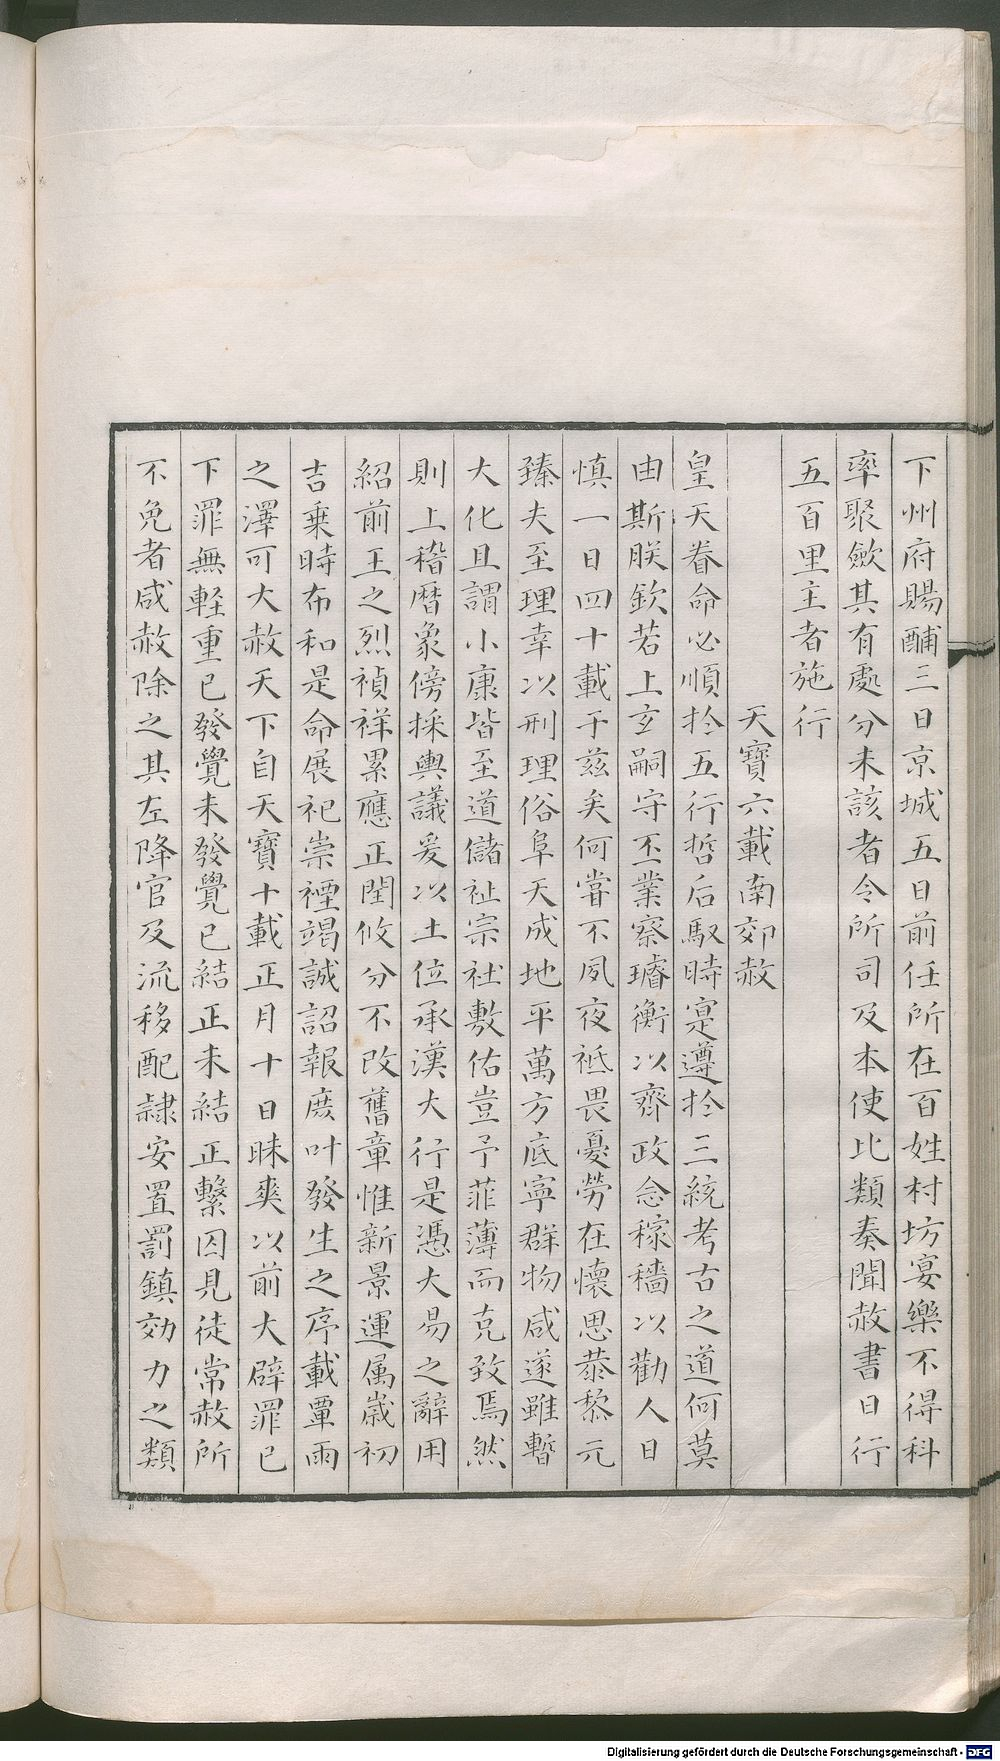 下州府賜酺三日京城五日前任所在百姓村坊宴樂不得科
率聚歛其有處分未該者令所司及本使比類奏聞赦書日行
五百里主者施行
天寶六載南郊赦
皇天眷命必順扵五行哲后馭時寔遵扵三統考古之道何莫
由斯朕欽若上玄嗣守丕業察璿衡以齊政念稼穡以勸人日
慎一日四十載于兹矣何嘗不夙夜祗畏憂勞在懷思恭黎元
臻夫至理幸以刑理俗阜天成地平萬方底寧群物咸遂雖暫
大化且謂小康皆至道儲祉宗社敷佑豈予菲薄而克致焉然
則上稽暦象傍採輿議爰以土位承漢大行是憑大易之辭用
紹前王之烈禎祥累應正閏攸分不改舊章惟新景運属歲初
吉乗時布和是命展祀崇禋竭誠詔報庶叶發生之序載覃雨
之澤可大赦天下自天寶十載正月十日昧爽以前大辟罪已
下罪無軽重已發覺未發覺已結正未結正繫囚見徒常赦所
不免者咸赦除之其左降官及流移配隷安置罰鎮効力之類
Digitalisierung gefördert durch die Deutsche Forschungsgemeinschaft - DFG